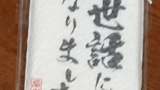 世話に
なりまし